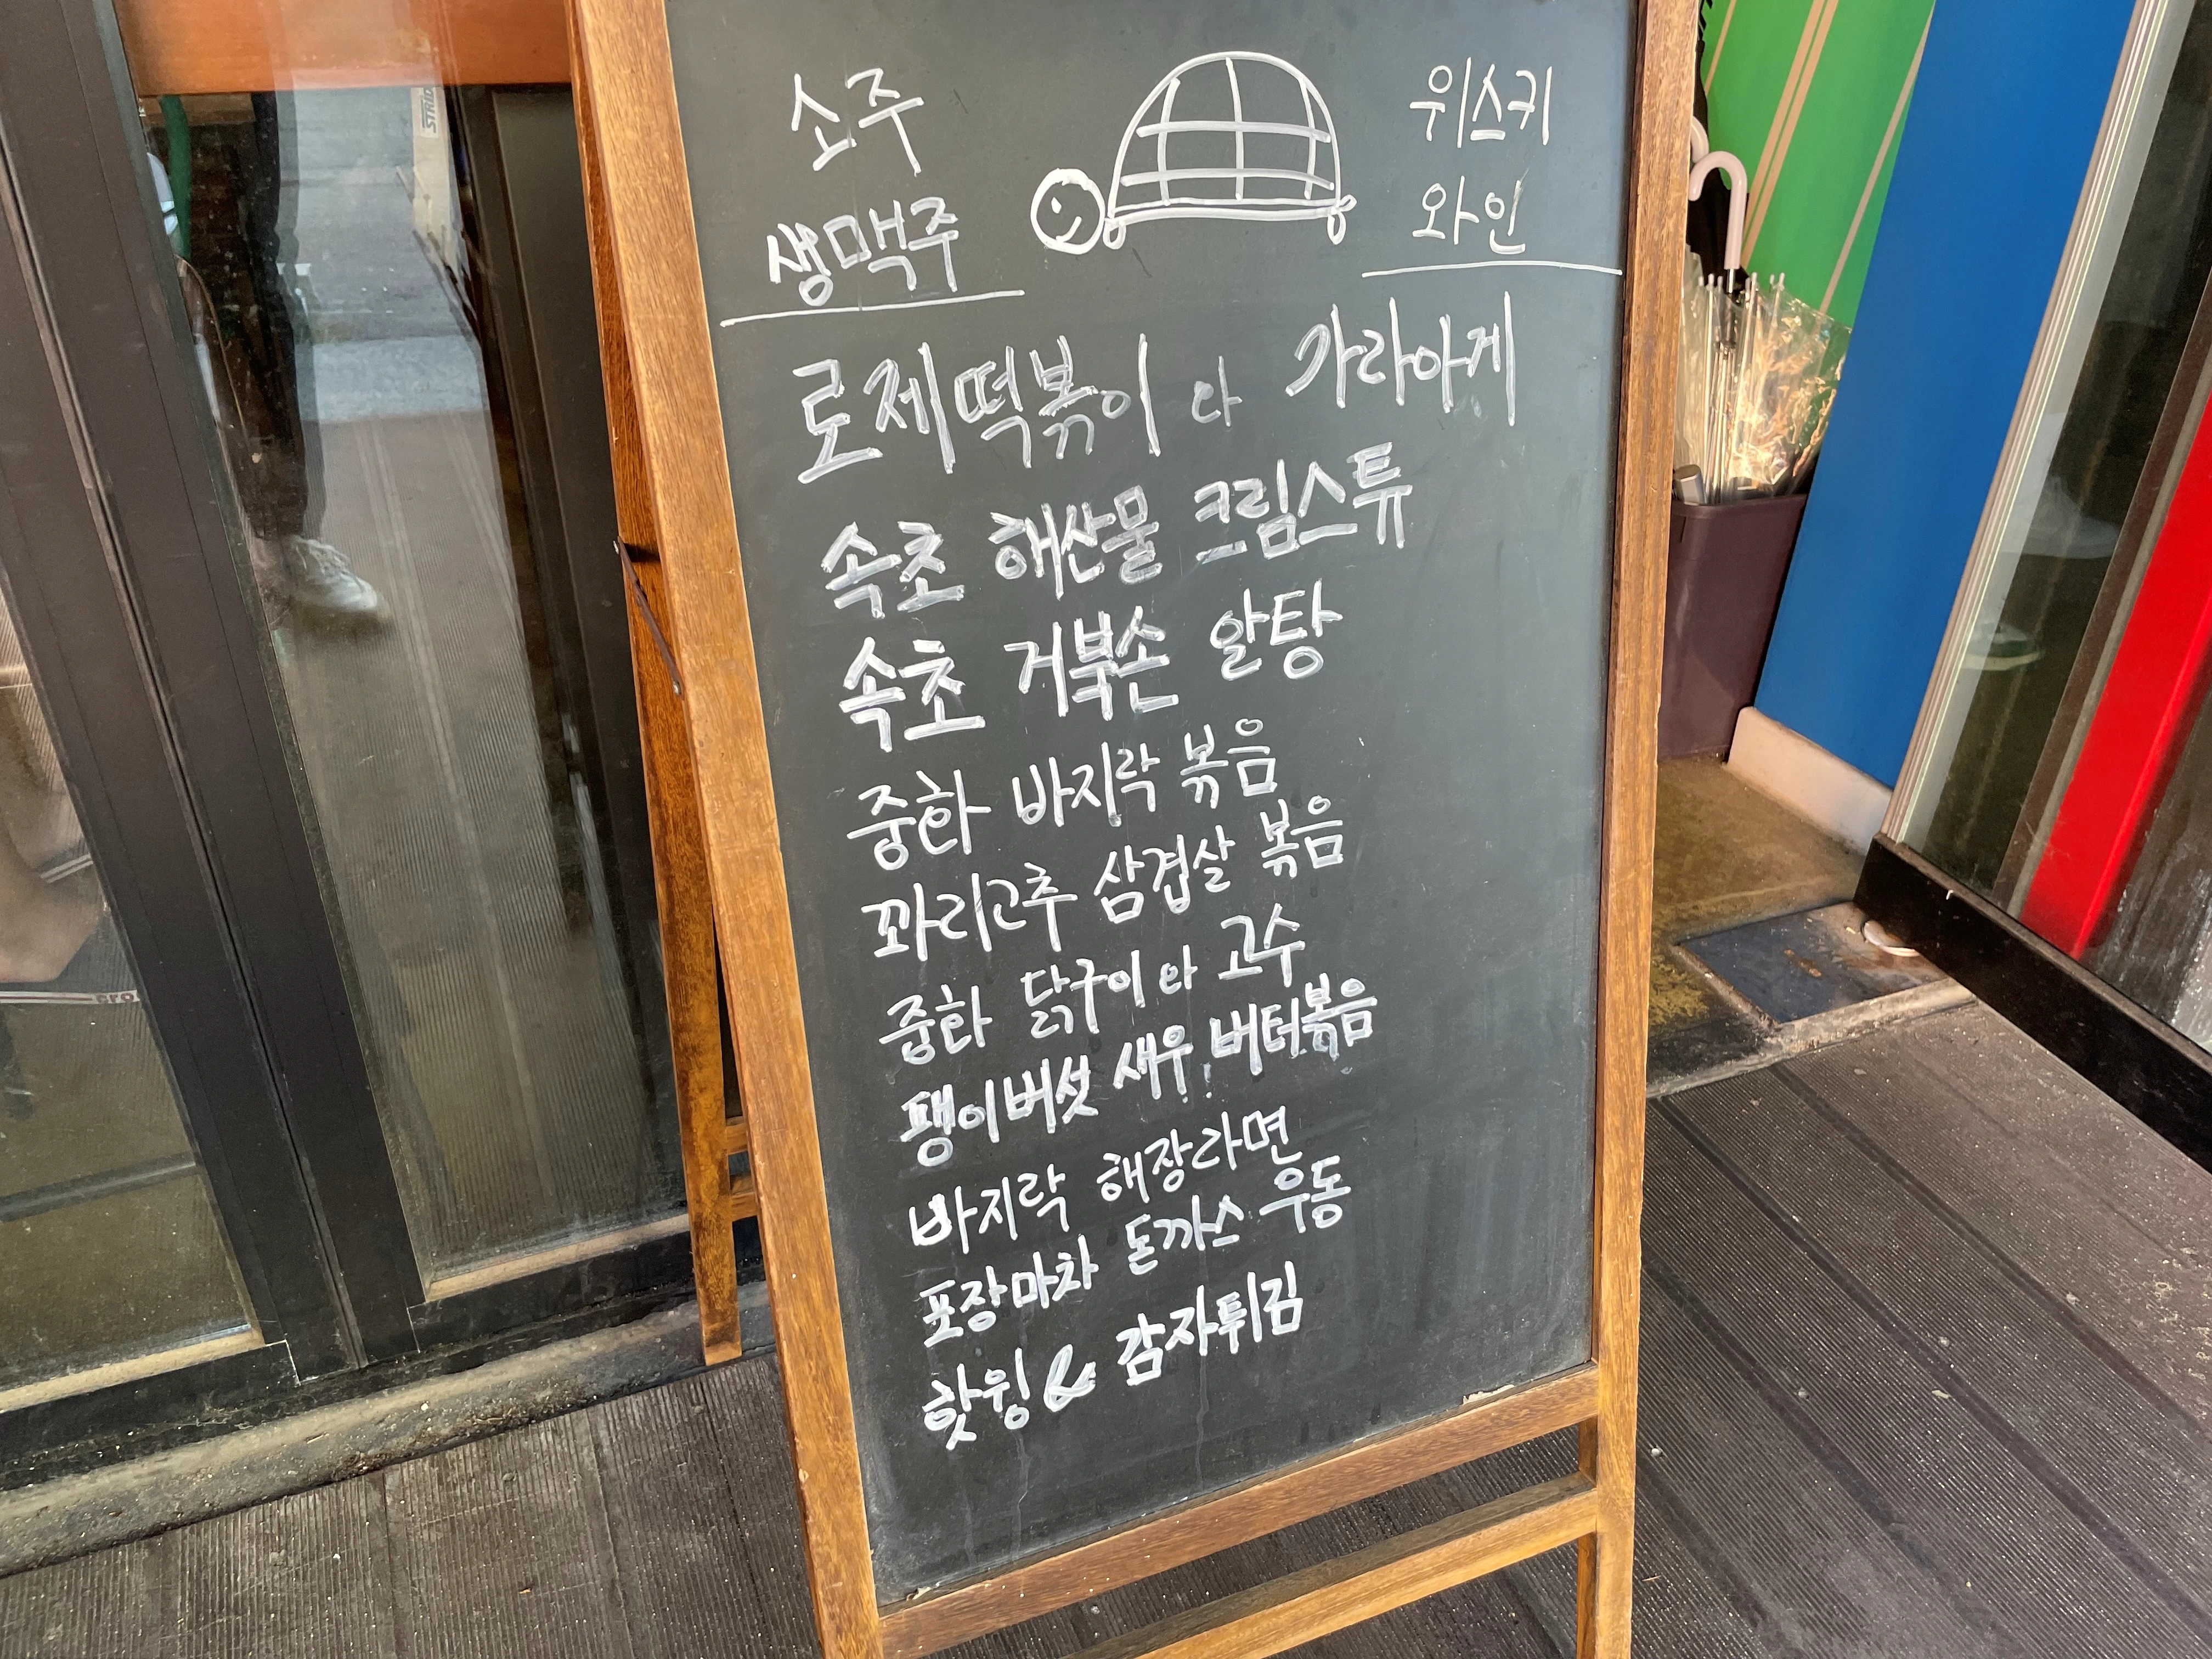 소주
생맥주
위스키
와인
로제떡볶이 와 가라아게
속초 해산물 크림스튜
속초 거북손 알탕
중화 바지락 볶음
꽈리고추 삼겹살 볶음
중화 닭구이 와 고수
팽이버섯 새우 버터볶음
바지락 해장라면
포장마차 돈까스 우동
핫윙 & 감자튀김